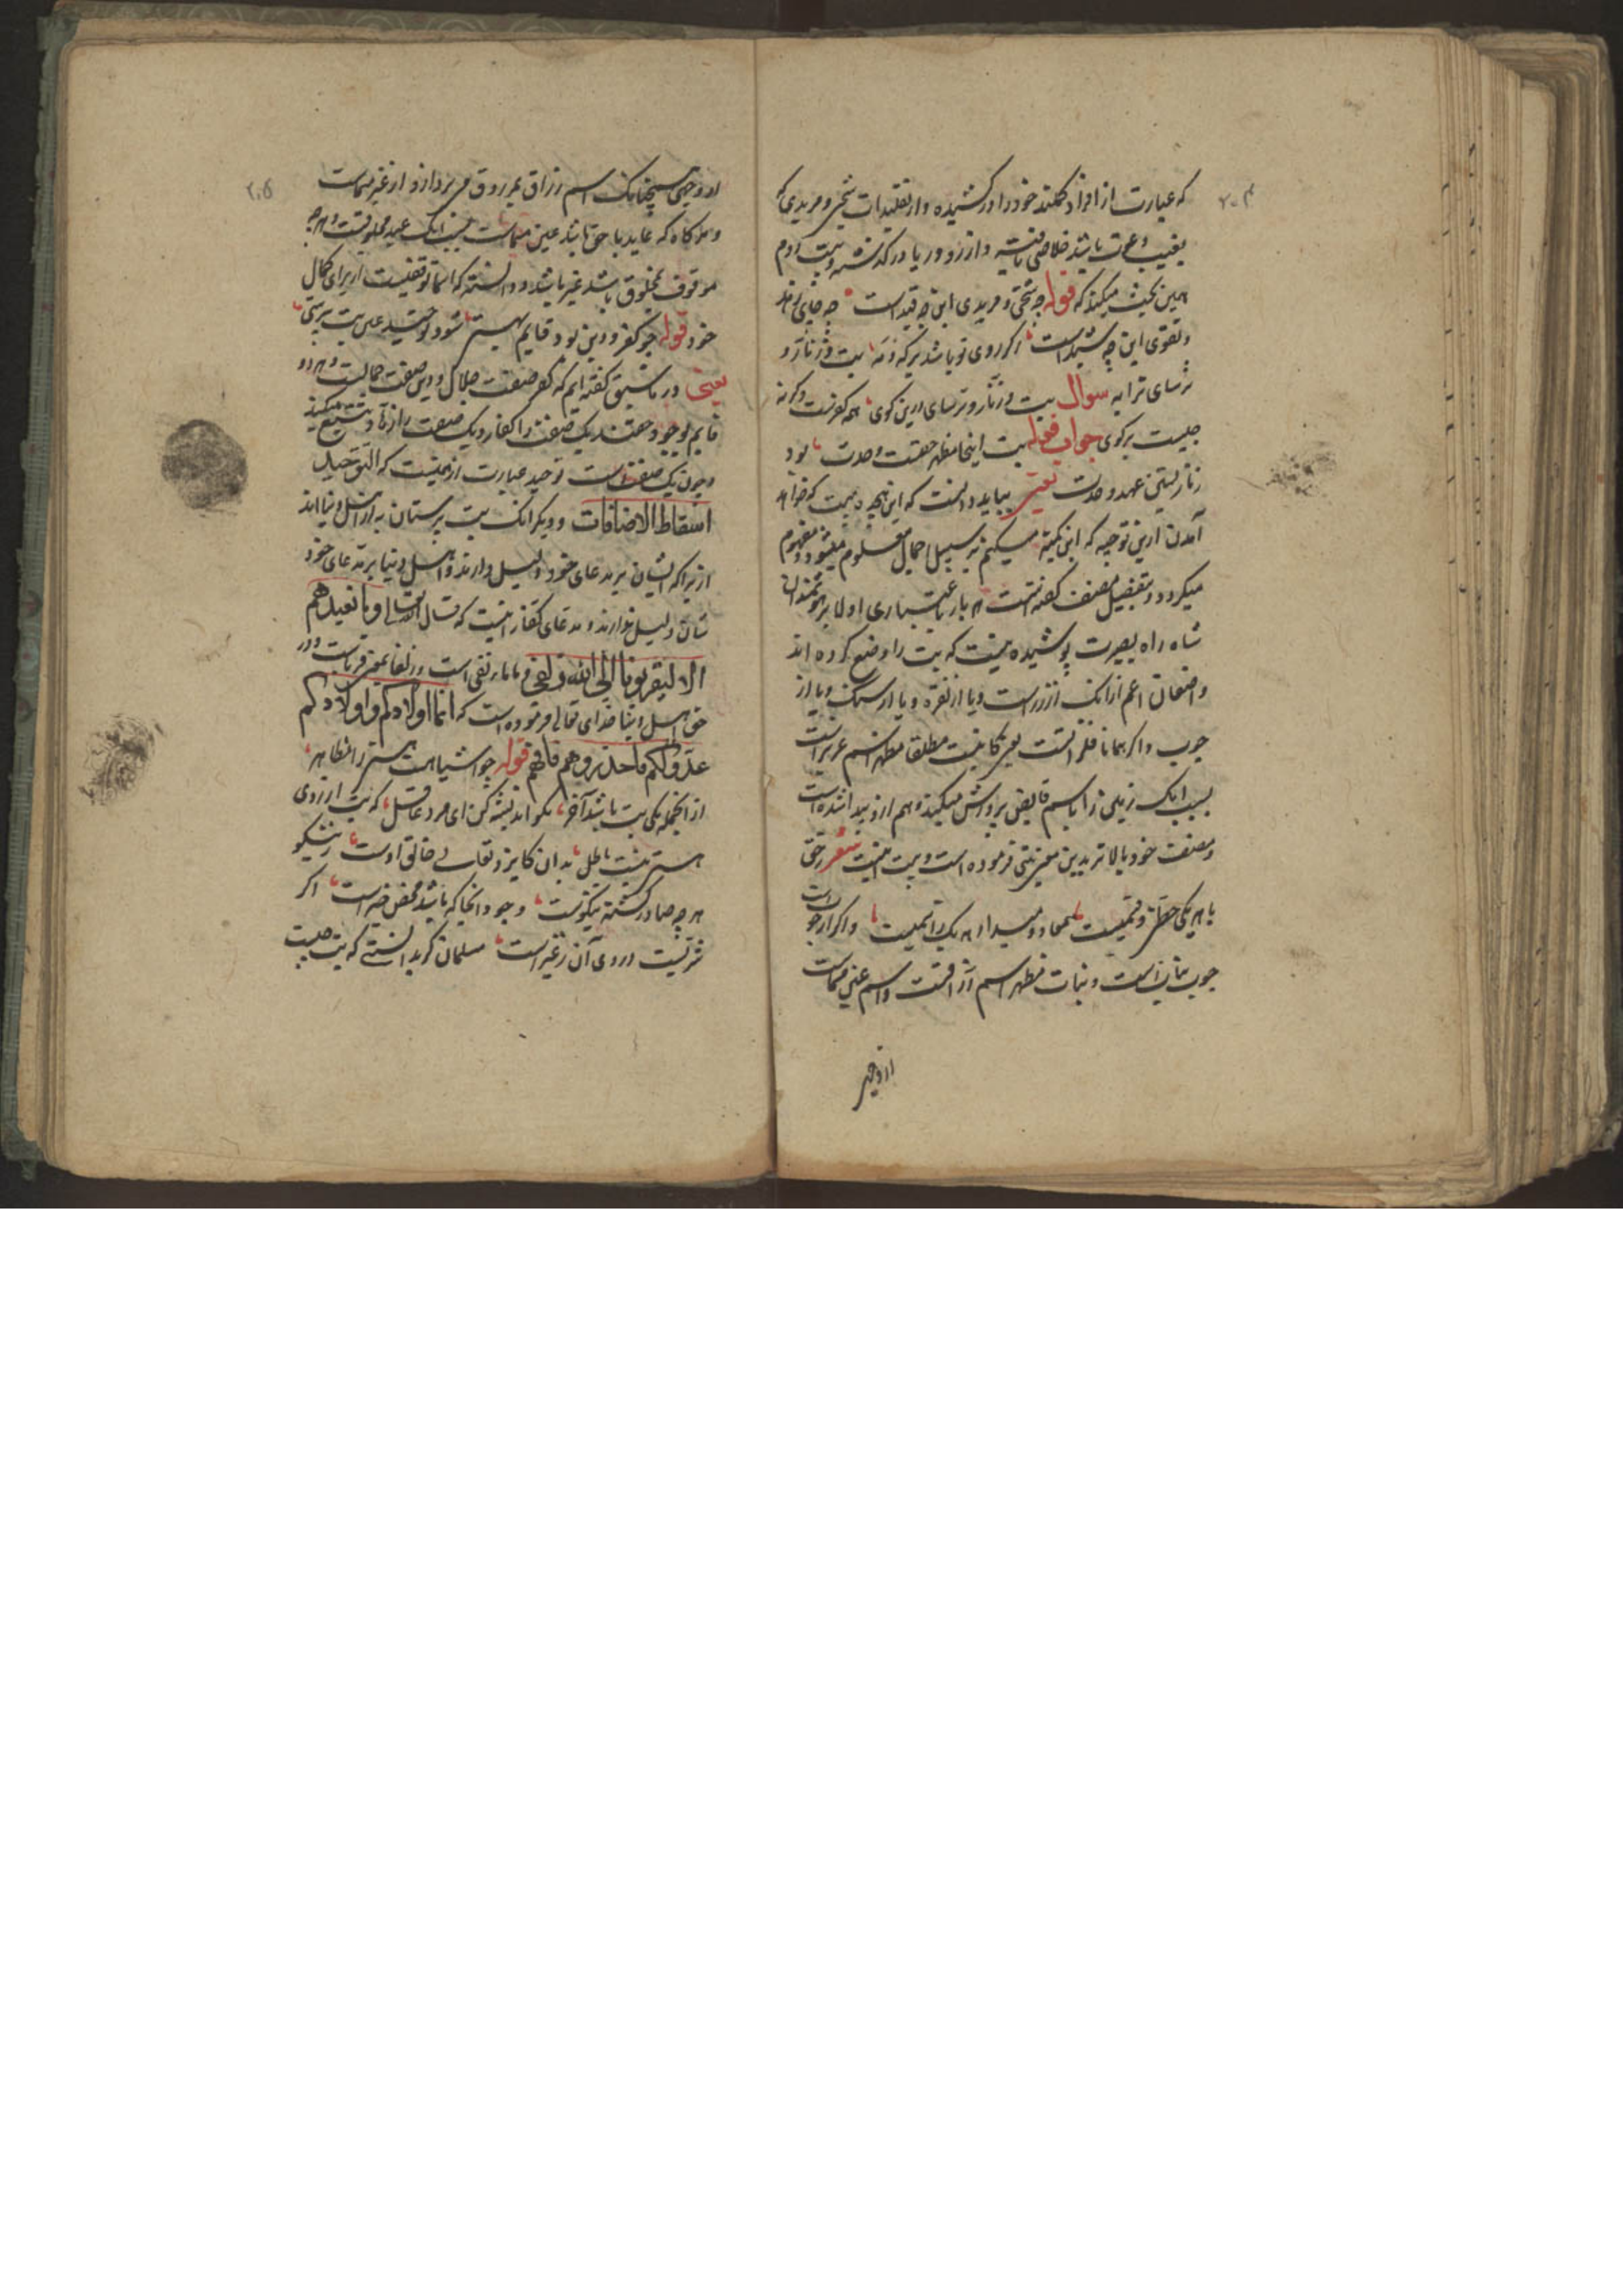 ۲۰۴
که عبارت از افراد کمّلند خود را در کشیده و از تقلیدات شیخی و مریدی که
بعیب باشد خلاصی یافته و از زرق و ریا در گذشته
همین بحث میکند که قوله چه شیخی و مریدی این چه قید است چه جای زهد
و تقوی این چه شید است اگر روی تو باشد در که و مه بت و زنار و
ترسای ترا به سوال بت و زنار و ترسایی درین کوی همه کفرست و گرنه
چیست برگوی جواب قوله بت اینجا مظهر عشقست و وحدت بود
زنار بستن عهد وحدت یعنی بباید دانست که این
آمدن ازین توجیه که این کمینه میکنم بر سبیل اجمال معلوم میشود و مفهوم
میگردد و بتفصیل مصنف گفته است اولا بر هوشمندان
شاه راه بصیرت پوشیده نیست که بت را وضع کرده اند
و اصنعان اعم از آنک از زرست و یا از نقره و یا از سنگ و یا از
چوب و اگر مطلقا مظهر اسم عزیز است
بسبب آنک زمین را باسم قابض پرورش میکند و هم ازو پیدا شده است
و مصنف خود بالاتر ازین فرموده است و بیت اینست شعر حق
با هر یکی حظی و قسمیست معاد و مبدا هر یک ز اسمیست و اگر از چوب است
چوب نباتست و نبات مظهر اسم رزاقست و اسم عین مسماست
از وجهی
۲۰۵
از وجهی چنانک اسم رزاق بمرزوق می پردازد و از غیر مسماست
و هرگاه که عاید با حق باشد عین مسماست بسبب آنک عبد مخلوقست و هرچه
موقوف بمخلوق باشد غیر باشد و دانسته که اسما توقیفیست از برای کمال
خود قوله چو کفر و دین بود قایم بهستی شود توحید عین بت پرستی
یعنی در ما سبق گفته ایم که کفر صفت جلال و دین صفت جمالست و هر دو
قایم بوجود حقند یک صفت را کفار و یک صفت را
و چون یک صفت است توحید عبارت ازینست که التوحید
اسقاط الاضافات و دیگر آنک بت پرستان به از اهل دنیا اند
از برا که ایشان بر مدعای خود دلیل دارند و اهل دنیا بر مدعای خود
شان دلیل ندارند و مدعای کفار اینست که قال الله تعالی و ما نعبدهم
الا لیقربونا الی الله زلفی و ما نافیه است و زلفا بمعنی قربست و در
حق اهل دنیا خدای تعالی فرموده است که انما اولادکم و اولادکم
عدو لکم فاحذروهم فافهم قوله چو اشیا هست هستی را مظاهر
از آن جمله یکی بت باشد آخر نکو اندیشه کن ای مرد عاقل که بت از روی
هستی نیست باطل بدان کایزد تعالی خالق اوست ز نیکو
هر چه صادر گشت نیکوست وجود آنجا که باشد محض خیر است اگر
شریست در وی آن ز غیر است مسلمان گر بدانستی که بت چیست